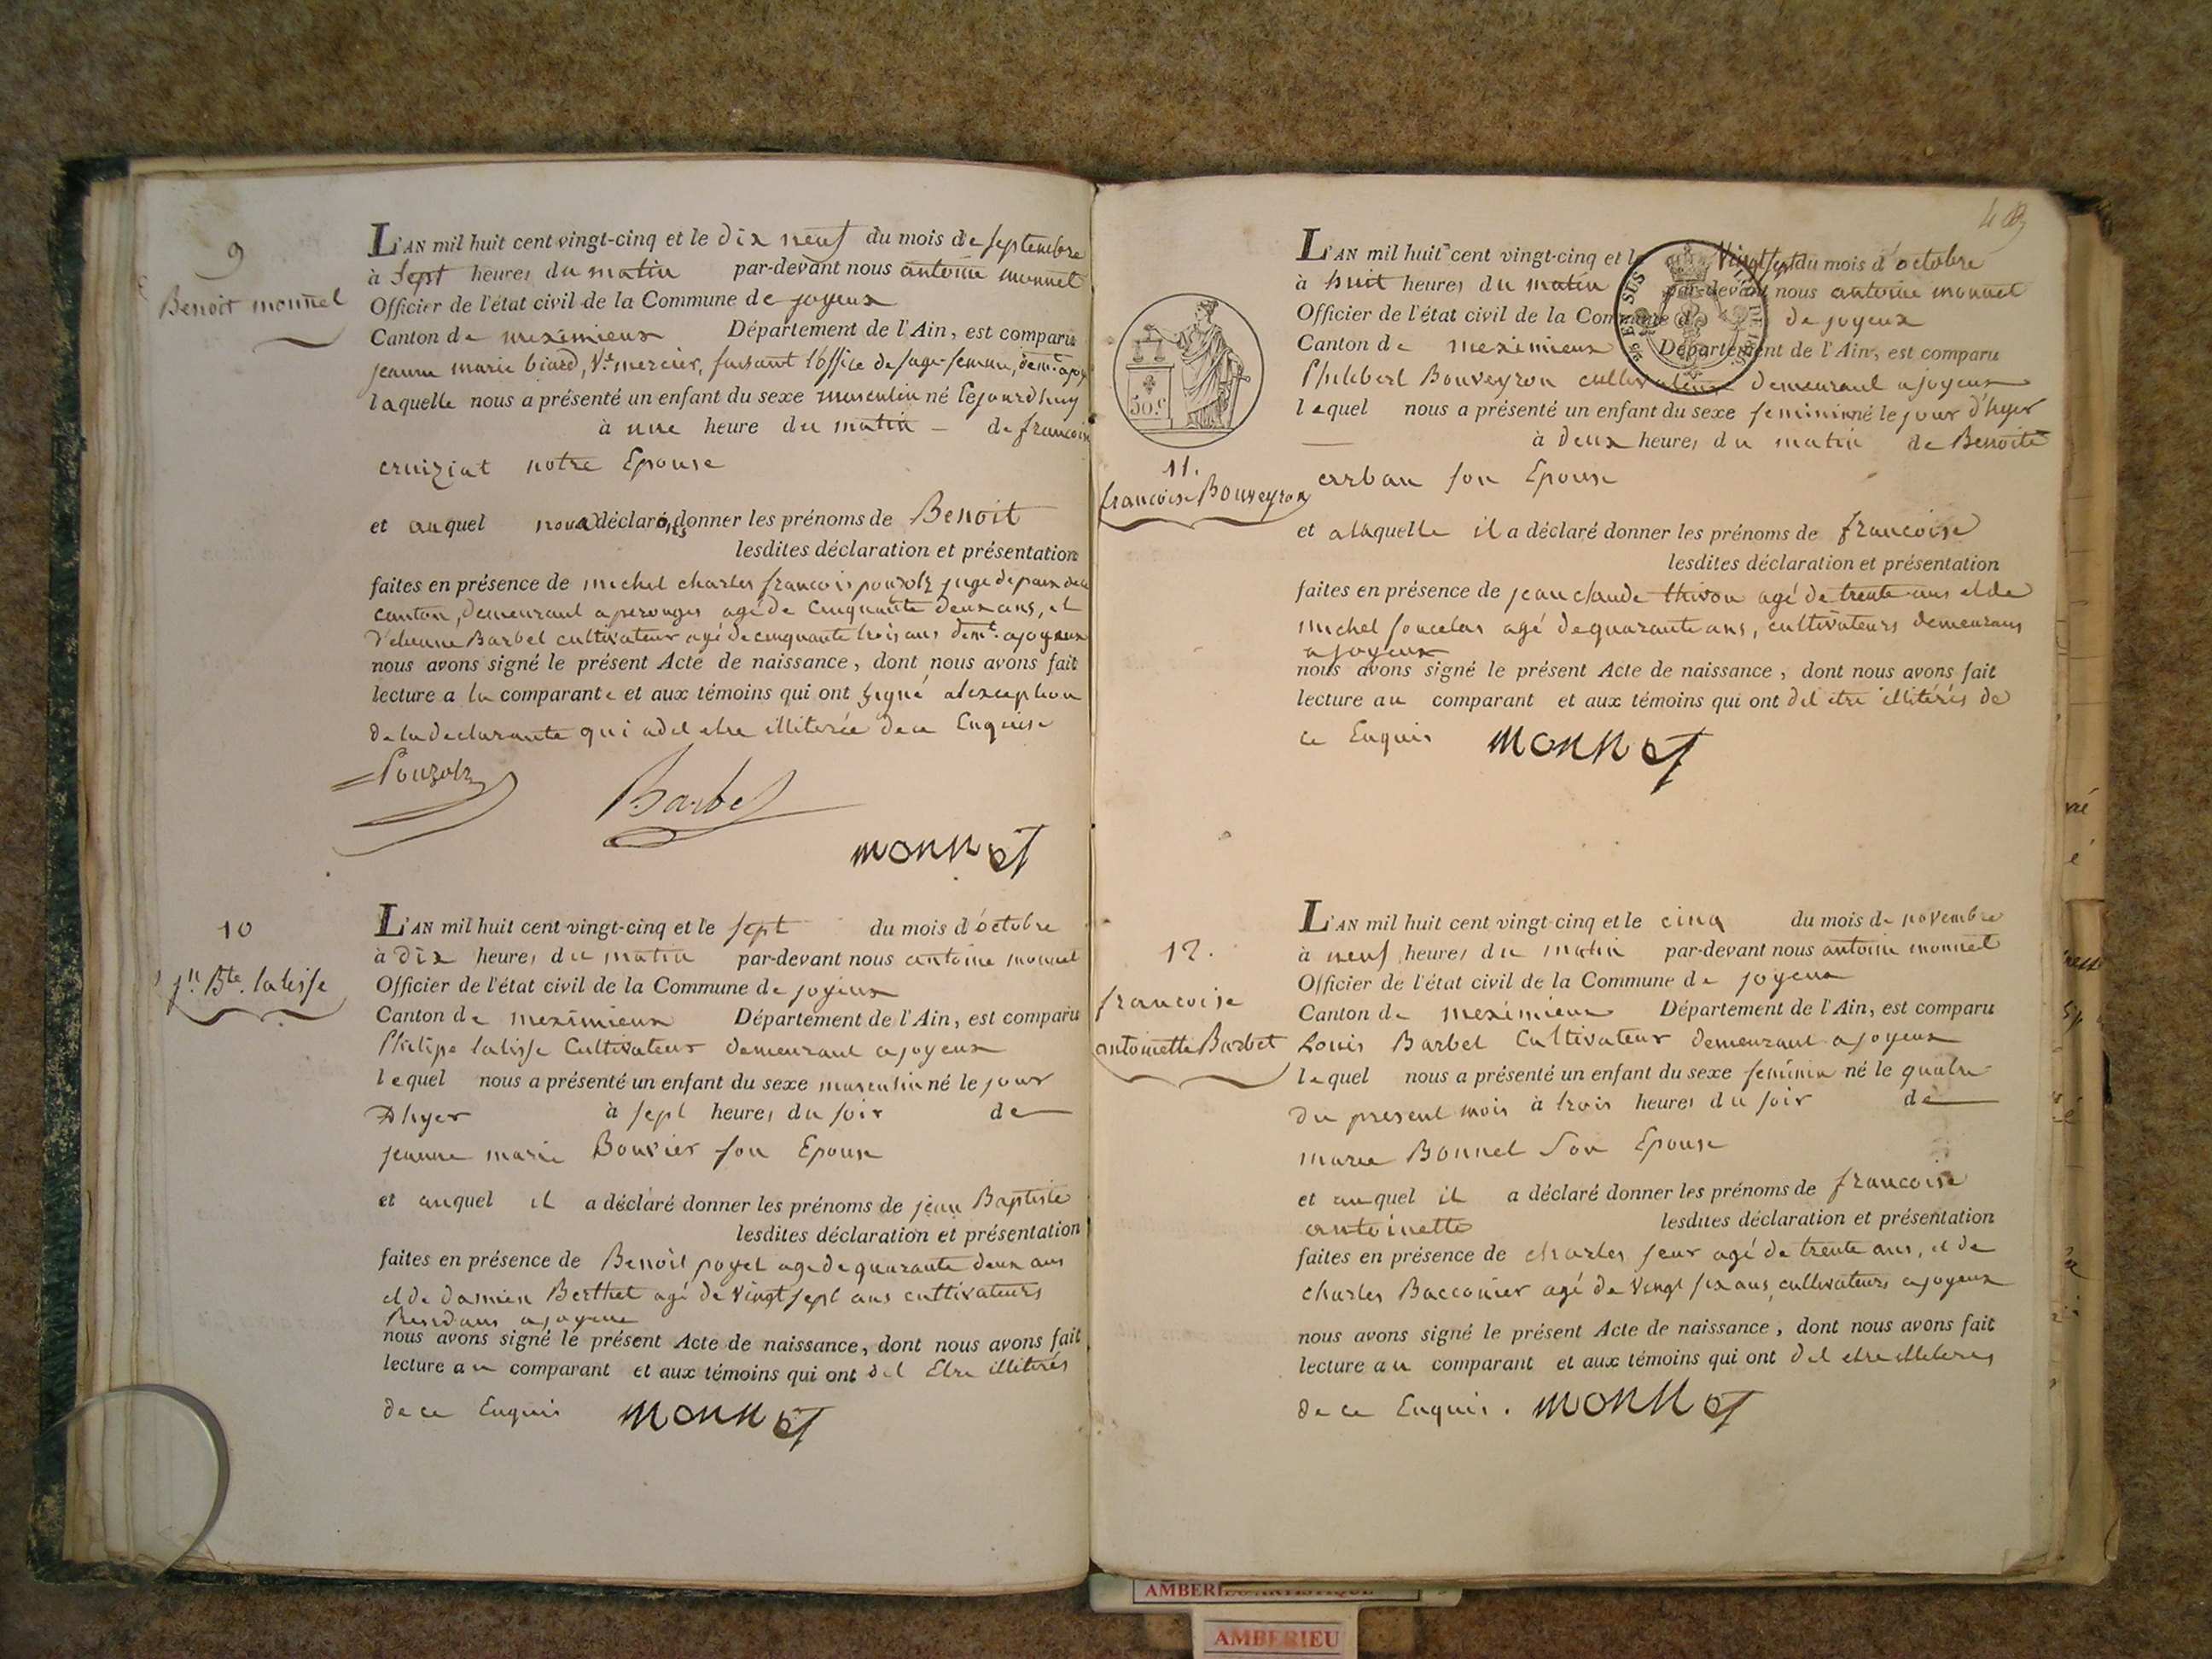 9
Benoit monnet
L'AN mil huit cent vingt-cinq et le dix neuf du mois de septembre
à sept heures du matin par-devant nous antoine monnet
Officier de l'état civil de la Commune de joyeux
Canton de meximieux Département de l'Ain, est comparu
jeanne marie biard, Ve mercier, faisant l'office de sage-femme, demt a joy
laquelle nous a présenté un enfant du sexe masculin né lejourdhuy
à une heure du matin - de francoise
cruiziat notre Epouse
et auquel nous déclarons donner les prénoms de Benoit
lesdites déclaration et présentation
faites en présence de michel charles francois pouzolz juge de paix de ce
canton, demeurant a perouges agé de cinquante deux ans, et
d'etienne Barbet cultivateur agé de cinquante trois ans demt. a joyeux
nous avons signé le présent Acte de naissance, dont nous avons fait
lecture a la comparante et aux témoins qui ont signé alexception
de la declarante qui a dit etre illiterée de ce Enquise
Pouzolz
Barbet
monnet
10
jn. Bte. latisse
L'AN mil huit cent vingt-cinq et le sept du mois d'octobre
à dix heures du matin par-devant nous antoine monnet
Officier de l'état civil de la Commune de joyeux
Canton de meximieux Département de l'Ain, est comparu
Philipe latisse Cultivateur demeurant a joyeux
lequel nous a présenté un enfant du sexe masculin né le jour
d'hyer à sept heures du soir de
jeanne marie Bouvier son Epouse
et auquel il a déclaré donner les prénoms de jean Baptiste
lesdites déclaration et présentation
faites en présence de Benoit poyet age de quarante deux ans
et de damien Berthet agé de vingt sept ans cultivateurs
Residans a joyeux
nous avons signé le présent Acte de naissance, dont nous avons fait
lecture au comparant et aux témoins qui ont dit Etre illiterés
de ce Enquis monnet
48
50.c
EN SUS
11.
francoise Bouveyron
L'AN mil huit cent vingt-cinq et le Vingt sept du mois d'octobre
à huit heures du matin par-devant nous antoine monnet
Officier de l'état civil de la Commune de de joyeux
Canton de meximieux Département de l'Ain, est comparu
Philibert Bouveyron cultivateur demeurant a joyeux
lequel nous a présenté un enfant du sexe feminin né le jour d'hyer
à deux heures du matin de Benoite
arban son Epouse
et alaquelle il a déclaré donner les prénoms de francoise
lesdites déclaration et présentation
faites en présence de jean claude thivon agé de trente ans et de
michel soucelas agé de quarante ans, cultivateurs demeurans
a joyeux
nous avons signé le présent Acte de naissance, dont nous avons fait
lecture au comparant et aux témoins qui ont dit etre illitérés de
ce Enquis monnet
12.
francoise
antoinette Barbet
L'AN mil huit cent vingt-cinq et le cinq du mois de novembre
à neuf heures du matin par-devant nous antoine monnet
Officier de l'état civil de la Commune de joyeux
Canton de meximieux Département de l'Ain, est comparu
Louis Barbet Cultivateur demeurant a joyeux
lequel nous a présenté un enfant du sexe feminin né le quatre
du present mois à trois heures du soir de
marie Bonnet son Epouse
et auquel il a déclaré donner les prénoms de francoise
antoinette lesdites déclaration et présentation
faites en présence de charles seur agé de trente ans, et de
charles Bacconier agé de vingt six ans, cultivateurs a joyeux
nous avons signé le présent Acte de naissance, dont nous avons fait
lecture au comparant et aux témoins qui ont dit etre illiteres
de ce Enquis. monnet
AMBERIEU